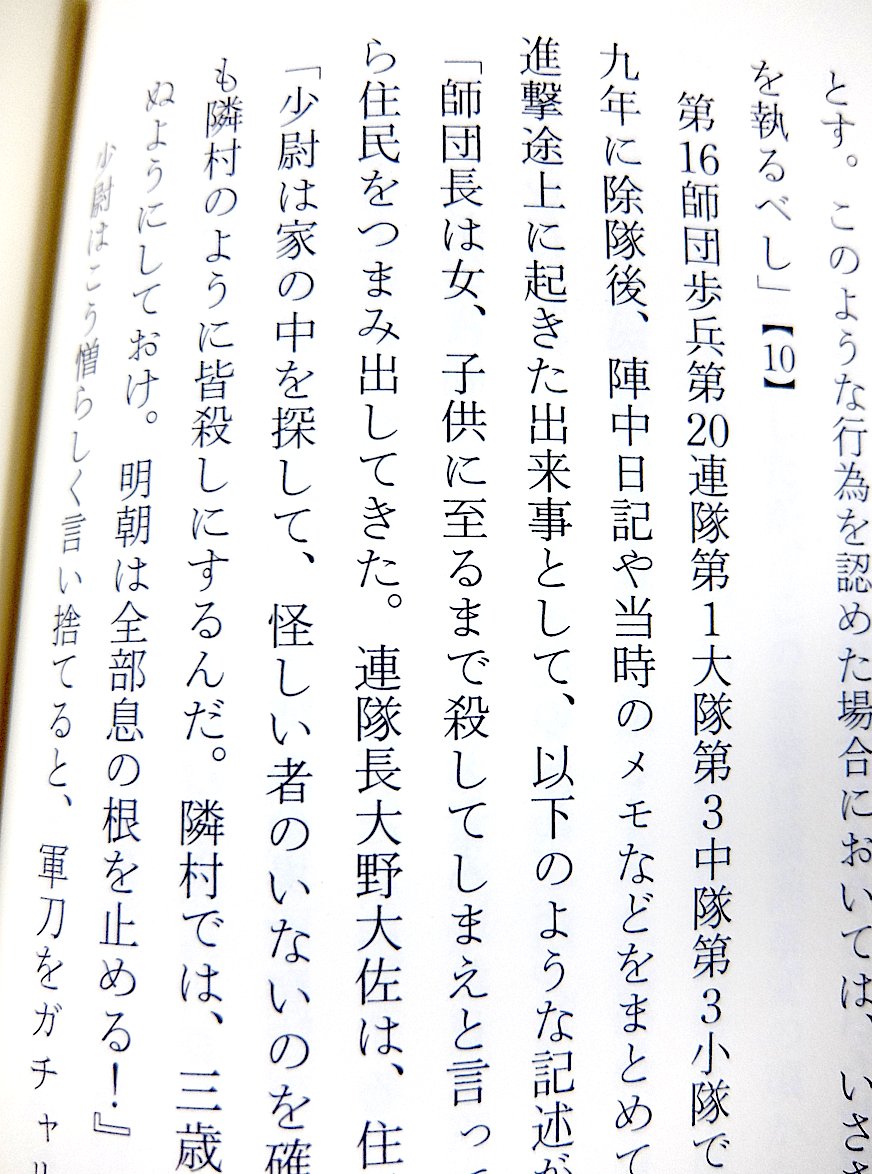 とす。このような行為を認めた場合においては、いささ
を執るべし」【10】
第16師団歩兵第20連隊第1大隊第3中隊第3小隊で
九年に除隊後、陣中日記や当時のメモなどをまとめて
進撃途上に起きた出来事として、以下のような記述が
「師団長は女、子供に至るまで殺してしまえと言って
ら住民をつまみ出してきた。連隊長大野大佐は、住
「少尉は家の中を探して、怪しい者のいないのを確
も隣村のように皆殺しにするんだ。隣村では、三歳
ぬようにしておけ。明朝は全部息の根を止める！』
少尉はこう憎らしく言い捨てると、軍刀をガチャリ